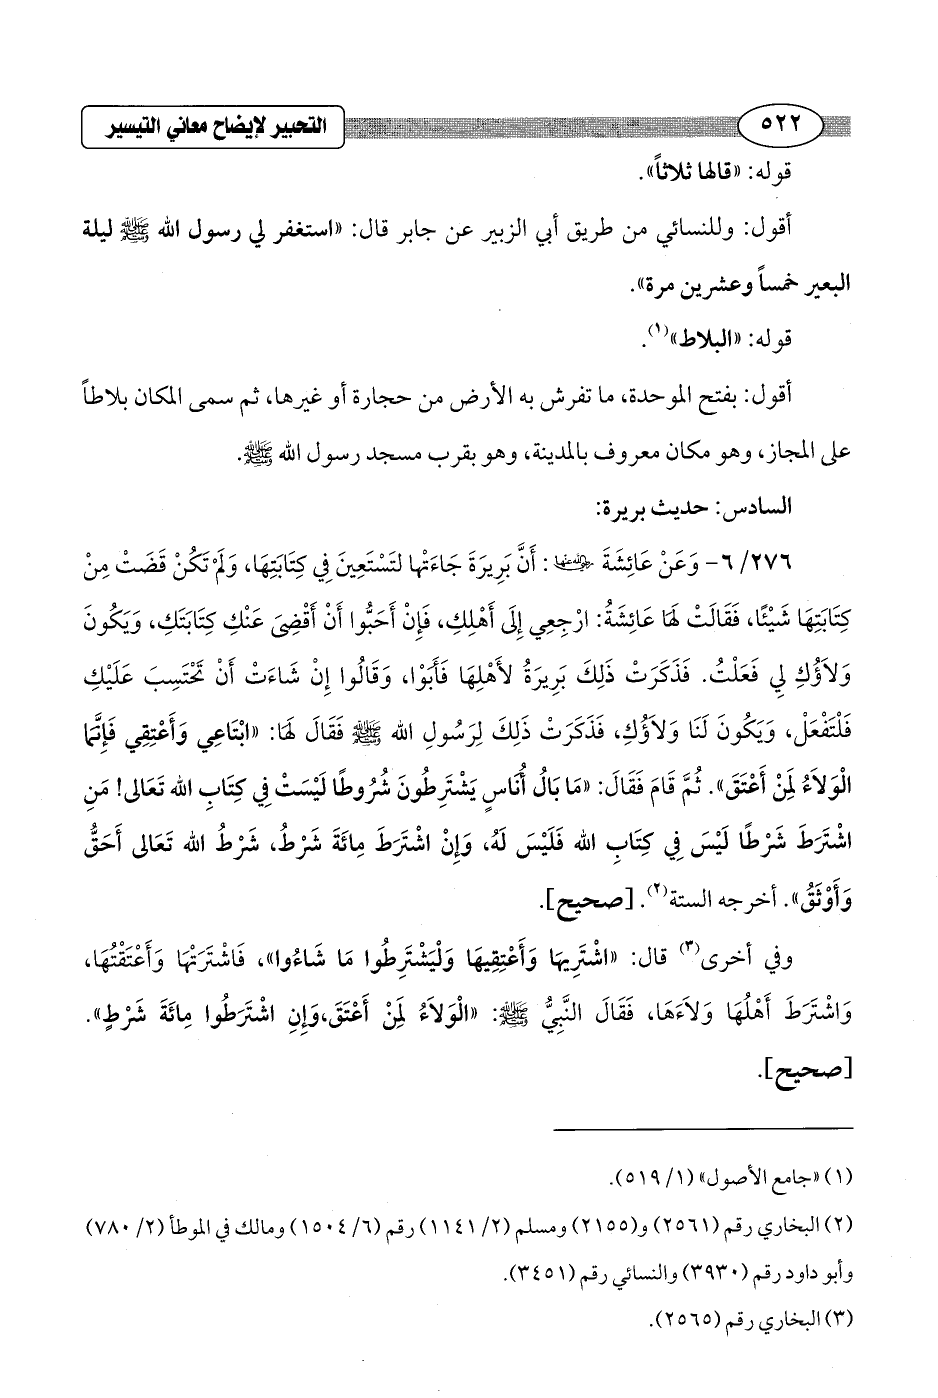 ٥٢٢
التحبير لإيضاح معاني التيسير
قوله: «قالها ثلاثاً».
أقول: وللنسائي من طريق أبي الزبير عن جابر قال: «استغفر لي رسول الله ﷺ ليلة
البعير خمساً وعشرين مرة».
قوله: «البلاط»(١).
أقول: بفتح الموحدة، ما تفرش به الأرض من حجارة أو غيرها، ثم سمى المكان بلاطاً
على المجاز، وهو مكان معروف بالمدينة، وهو بقرب مسجد رسول الله ﷺ.
السادس: حديث بريرة:
٦/٢٧٦- وَعَنْ عَائِشَةَ رضي الله عنها: أَنَّ بَرِيرَةَ جَاءَتْهَا لتَسْتَعِينَ فِي كِتَابَتِهَا، وَلَمْ تَكُنْ قَضَتْ مِنْ
كِتَابَتِهَا شَيْئًا، فَقَالَتْ لَهَا عَائِشَةُ: ارْجِعِي إِلَى أَهْلِكِ، فَإِنْ أَحَبُّوا أَنْ أَقْضِىَ عَنْكِ كِتَابَتَكِ، وَيَكُونَ
وَلاَؤُكِ لِي فَعَلْتُ. فَذَكَرَتْ ذَلِكَ بَرِيرَةُ لأَهْلِهَا فَأَبَوْا، وَقَالُوا إِنْ شَاءَتْ أَنْ تَحْتَسِبَ عَلَيْكِ
فَلْتَفْعَلْ، وَيَكُونَ لَنَا وَلاَؤُكِ، فَذَكَرَتْ ذَلِكَ لِرَسُولِ الله ﷺ فَقَالَ لَهَا: «ابْتَاعِي وَأَعْتِقِي فَإِنَّمَا
الْوَلاَءُ لِمَنْ أَعْتَقَ». ثُمَّ قَامَ فَقَالَ: «مَا بَالُ أُنَاسٍ يَشْتَرِطُونَ شُرُوطًا لَيْسَتْ فِي كِتَابِ الله تَعَالى! مَنِ
اشْتَرَطَ شَرْطًا لَيْسَ فِي كِتَابِ الله فَلَيْسَ لَهُ، وَإِنْ اشْتَرَطَ مِائَةَ شَرْطُ، شَرْطُ الله تَعَالى أَحَقُّ
وَأَوْثَقُ». أخرجه الستة(٢). [صحيح].
وفي أخرى(٣) قال: «اشْتَرِيهَا وَأَعْتِقِيهَا وَلْيَشْتَرِطُوا مَا شَاءُوا»، فَاشْتَرَتْهَا وَأَعْتَقْتُهَا،
وَاشْتَرَطَ أَهْلُهَا وَلاَءَهَا، فَقَالَ النَّبِيُّ ﷺ: «الْوَلاَءُ لِمَنْ أَعْتَقَ،وَإِنِ اشْتَرَطُوا مِائَةَ شَرْطٍ».
[صحيح].
(١) «جامع الأصول» (١/ ٥١٩).
(٢) البخاري رقم (٢٥٦١) و(٢١٥٥) ومسلم (٢/ ١١٤١) رقم (٦/ ١٥٠٤) ومالك في الموطأ (٢/ ٧٨٠)
وأبو داود رقم (٣٩٣٠) والنسائي رقم (٣٤٥١).
(٣) البخاري رقم (٢٥٦٥).